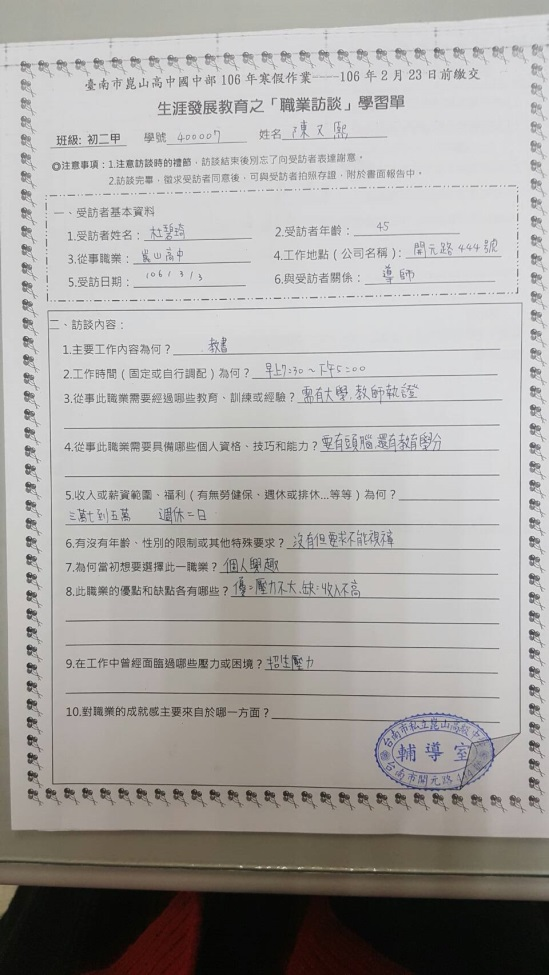 臺南市崑山高中國中部106年寒假作業----106年2月23日前繳交
生涯發展教育之「職業訪談」學習單
班級: 初二甲 學號 400007 姓名 陳又熙
◎注意事項：1.注意訪談時的禮節，訪談結束後別忘了向受訪者表達謝意。
2.訪談完畢，徵求受訪者同意後，可與受訪者拍照存證，附於書面報告中。
一、受訪者基本資料
1.受訪者姓名：杜碧琦 2.受訪者年齡： 45
3.從事職業：崑山高中 4.工作地點（公司名稱）：開元路444號
5.受訪日期： 106/3/3 6.與受訪者關係： 導師
二、訪談內容：
1.主要工作內容為何？ 教書
2.工作時間（固定或自行調配）為何？ 早上7:30~下午5:00
3.從事此職業需要經過哪些教育、訓練或經驗？需有大學.教師執證
4.從事此職業需要具備哪些個人資格、技巧和能力？要有頭腦.還有教育學分
5.收入或薪資範圍、福利（有無勞健保、週休或排休...等等）為何？
三萬七到五萬 週休二日
6.有沒有年齡、性別的限制或其他特殊要求？沒有但要求不能視障
7.為何當初想要選擇此一職業？個人興趣
8.此職業的優點和缺點各有哪些？優=壓力不大.缺=收入不高
9.在工作中曾經面臨過哪些壓力或困境？招生壓力
10.對職業的成就感主要來自於哪一方面？
台南市私立崑山高級中
輔導室
台南市開元路444